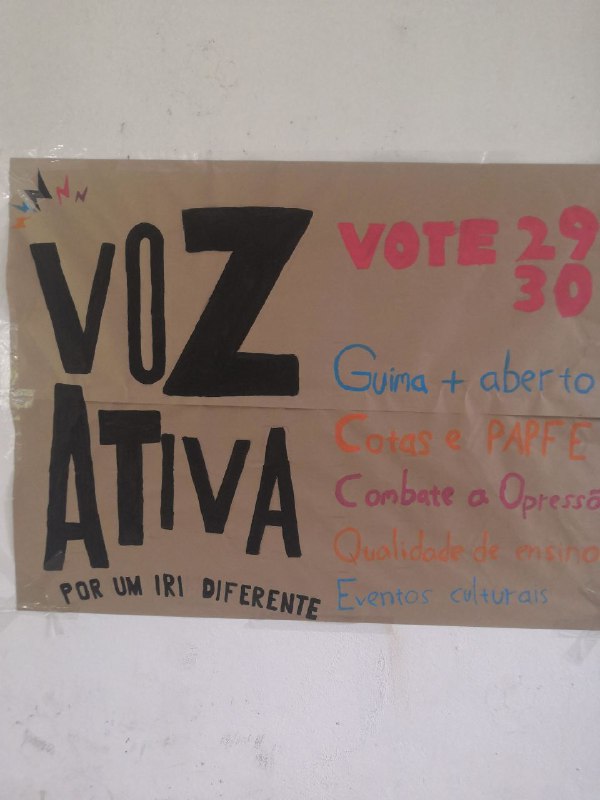 VOZ
ATIVA
POR UM IRI DIFERENTE
VOTE 29
30
Guima + aberto
Cotas e PAPFE
Combate a Opressã
Qualidade de ensino
Eventos culturais